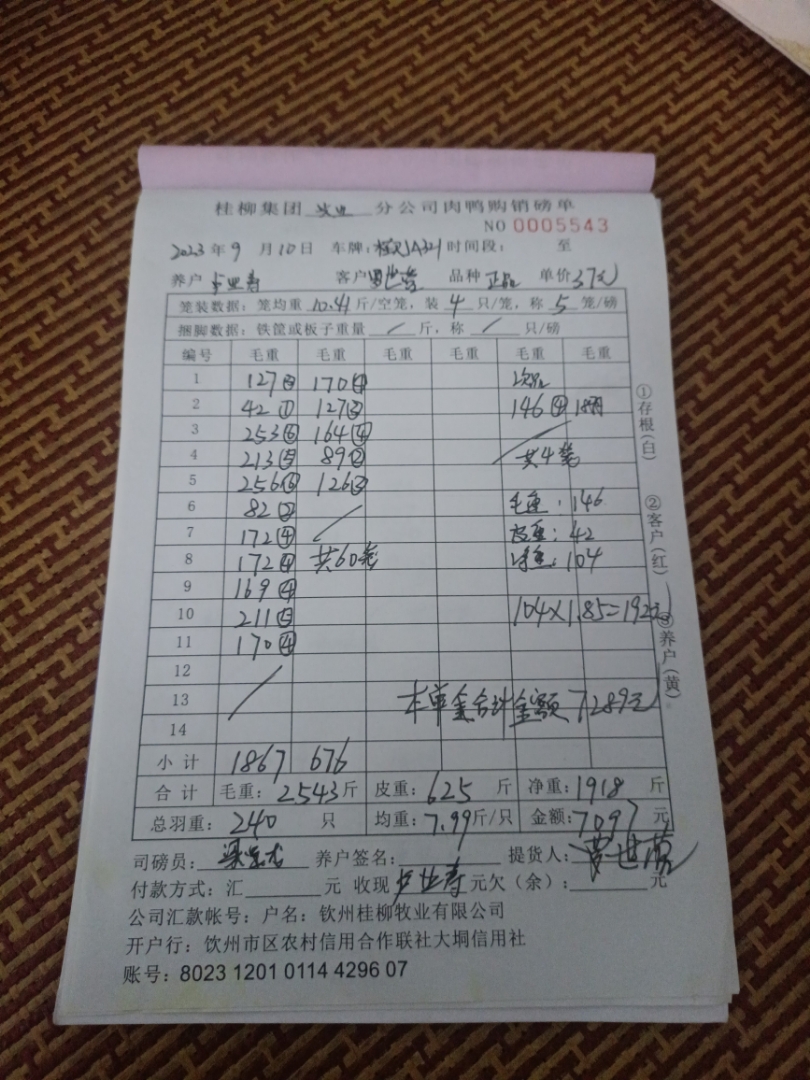 桂柳集团 分公司肉鸭购销磅单
NO 0005543
2023年9月10日 车牌: 时间段: 至
养户 客户 品种 正品 单价 3.7元
笼装数据: 笼均重 10.41 斤/空笼, 装 4 只/笼, 称 5 笼/磅
捆脚数据: 铁筐或板子重量 / 斤, 称 / 只/磅
编号 毛重 毛重 毛重 毛重 毛重 毛重
1 127③ 170④ 次品
2 42① 127③ 146④
3 253⑥ 164④
4 213⑤ 89② 共4笼
5 256⑥ 126③
6 82② 毛重: 146
7 172④ 皮重: 42
8 172④ 共60笼 净重: 104
9 169④
10 211⑤ 104×1.85=192元
11 170④
12
13 本单金合计金额7289元
14
小计 1867 676
合计 毛重: 2543斤 皮重: 625 斤 净重: 1918 斤
总羽重: 240 只 均重: 7.99斤/只 金额: 7097 元
司磅员: 养户签名: 提货人:
付款方式: 汇 元 收现 元欠(余): 元
公司汇款帐号: 户名: 钦州桂柳牧业有限公司
开户行: 钦州市区农村信用合作联社大垌信用社
账号: 8023 1201 0114 4296 07
①存根(白)
②客户(红)
③养户(黄)